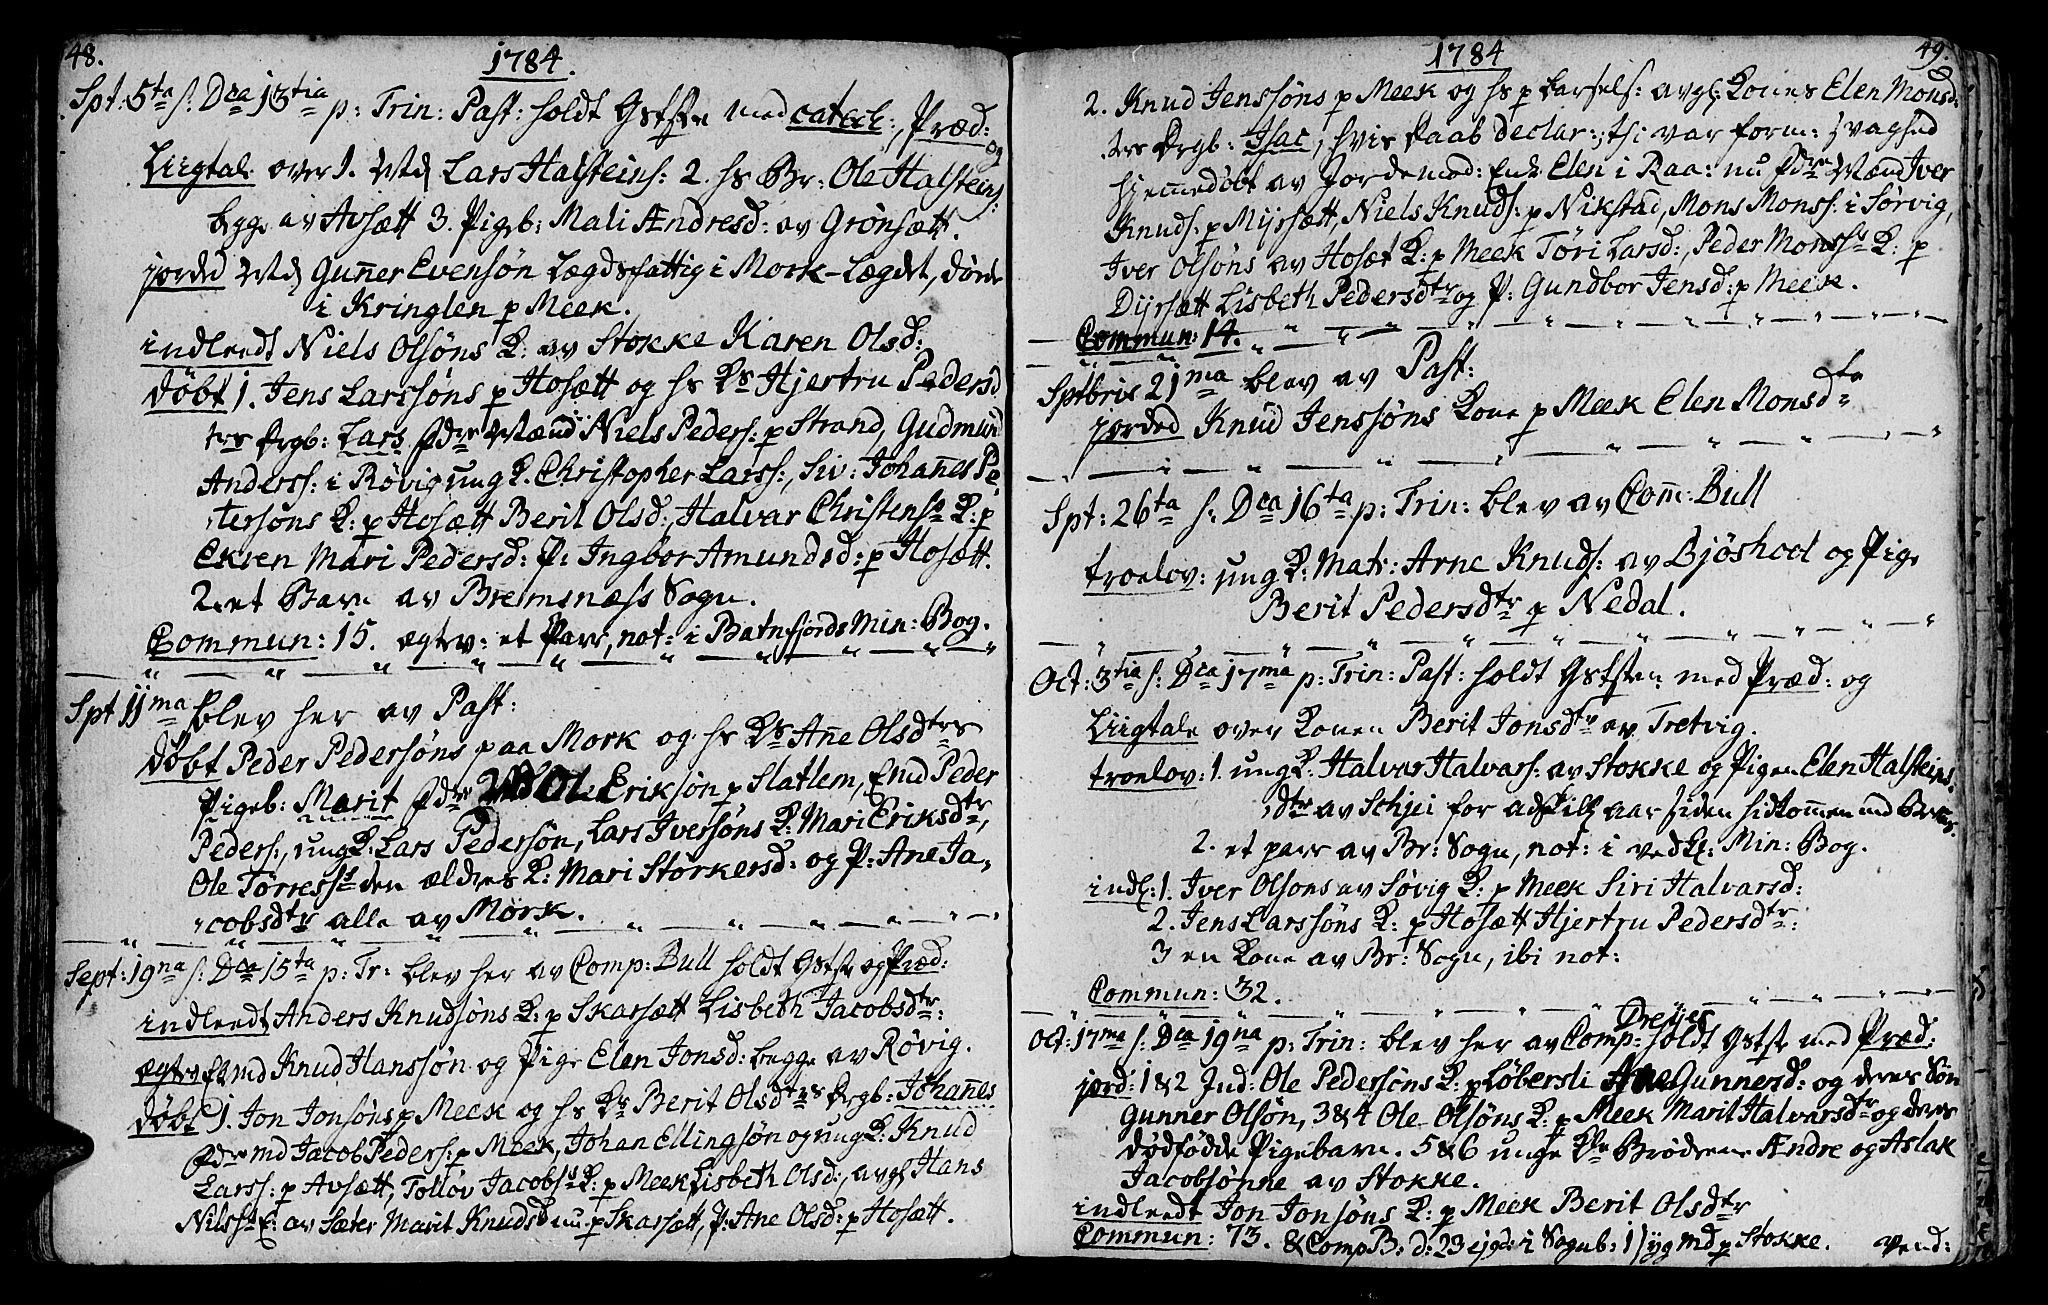 48.
1784.
Spt: 5ta s: Dca 13tia p: Trin: Past: holdt Gstste med catech:, Præd: og
Liigtale over 1. Md Lars Halsteins: 2. hs Br: Ole Halsteins:
begge av Avsætt 3. Pigeb: Mali Andresd: av Grönsætt.
jorded Md Gunner Evensön Lægdsfattig i Mork-Lægdet, döde
i Kringlen p Meek.
indleedt Niels Olsöns K: av Stokke Karen Olsd:
döbt 1. Jens Larssöns p Hosætt og hs Ks Hjertru Pedersd
trs drgb: Lars fdre Mænd Niels Peders: p Strand, Gudmund
Anderss: i Rövig ung K. Christopher Larss:, Siv: Johannes Pe
tersöns K: p Hosætt Beril Olsd:, Halvar Christenss K: p
Ekren Mari Pedersd: P: Ingbor Amundsd: p Hosætt.
2. et Barn av Bremsnæss Sogn.
Commun: 15. egtev: et Parr, not: i Batnfjords Min: Bog.
Spt 11ma blev her av Past:
döbt Peder Pedersöns paa Mork og hs Ks Anne Olsdtrs
Pigeb: Marit fdre Ole Eriksön p Slatlem, Knud Peder
Peders:, ung K: Lars Pedersön, Lars Iversöns K: Mari Eriksdtr,
Ole Törress den ældres K: Mari Storkersd: og P: Ane Ja,
cobsdtr alle av Mork.
Sept: 19na s: Dca 15ta p: Tr: blev her av Comp: Bull holdt Gstste og Præd:
indleedt Anders Knudsöns K: p Skarsætt Lisbeth Jacobsdtr:
egtev Et md Knud Hanssön og Pige Elen Jonsd: begge av Rövig.
döbt 1. Jon Jonsöns p Meek og hs Ks Berit Olsdtrs drgb: Johannes
fdre md Jacob Peders: p Meek, Johan Ellingsön og ung K: Knud
Larss: p Avsætt, Tollov Jacobss K: p Meek Lisbeth Olsd:, avgl Hans
Nilss E: av Sæter Marit Knudsd nu p Skarsætt, P: Ane Olsd: p Hosætt.
1784
49.
2. Knud Jenssöns p Meek og hs p barsels: avgl: Kones Elen Monsd:
trs drgb: Isac, hvis daab declar:, thi var form: svaghed
hjemedöbt av Jordemod: Enke Elen i Raa: nu fdre Mænd Iver
Knuds: p Myrsætt, Niels Knuds: p Nikstad, Mons Monss: i Sörvig,
Iver Olsöns av Hosæt K: p Meek Töri Larsd:, Peder Monss K: p
Dyrsætt Lisbeth Pedersdtr og P: Gundbor Jensd: p Meek.
Commun: 14.
Sptbris 21ma blev av Past:
jorded Knud Jenssöns Kone p Meek Elen Monsdtr
Spt: 26ta s: Dca 16ta p: Trin: blev av Com: Bull
troelov: ung K: Matr: Arne Knuds: av Bjöshod og Pige
Berit Pedersdtr p Nedal.
Oct: 3tia s: Dca 17ma p: Trin: Past: holdt Gstsen med Præd: og
Liigtale over Konen Berit Jonsdtr av Tretvig.
troelov: 1. ung K: Halvar Halvars: av Stokke og Pigen Elen Halsteins
dtr av Schjei for adskill aar siden hidkommen md
2. et parr av Br: Sogn, not: i vedk: Min: Bog.
indl: 1. Iver Olsons av Sövig K: p Meek Siri Halvarsd:
2. Jens Larssöns K: p Hosætt Hjertru Pedersdtr:
3 en Kone av Br: Sogn, ibi not:
Commun: 32.
Oct: 17ma s: Dca 19na p: Trin: blev her av Comp: Dreyer holdt Gstst med Præd:
jord: 1 & 2 Ind: Ole Pedersöns K: p Löbersli Ane Gunnersd: og deres Sön
Gunner Olsön, 3 & 4 Ole Olsöns K: p Meek Marit Halvarsdtr og deres
dödfödde Pigebarn. 5 & 6 unge Ke Brödrene Andre og Aslak
Jacobsönne av Stokke.
indleedt Jon Jonsöns K: p Meek Berit Olsdtr
Commun: 73. & Comp B: d: 23 ejsd: i Sognb: 1 syg md p Stokke. Vend: